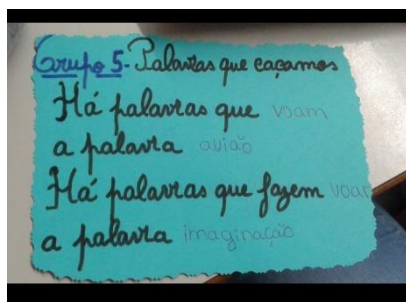 Grupo 5- Palavras que caçamos
Há palavras que voam
a palavra avião
Há palavras que fazem voar
a palavra imaginação